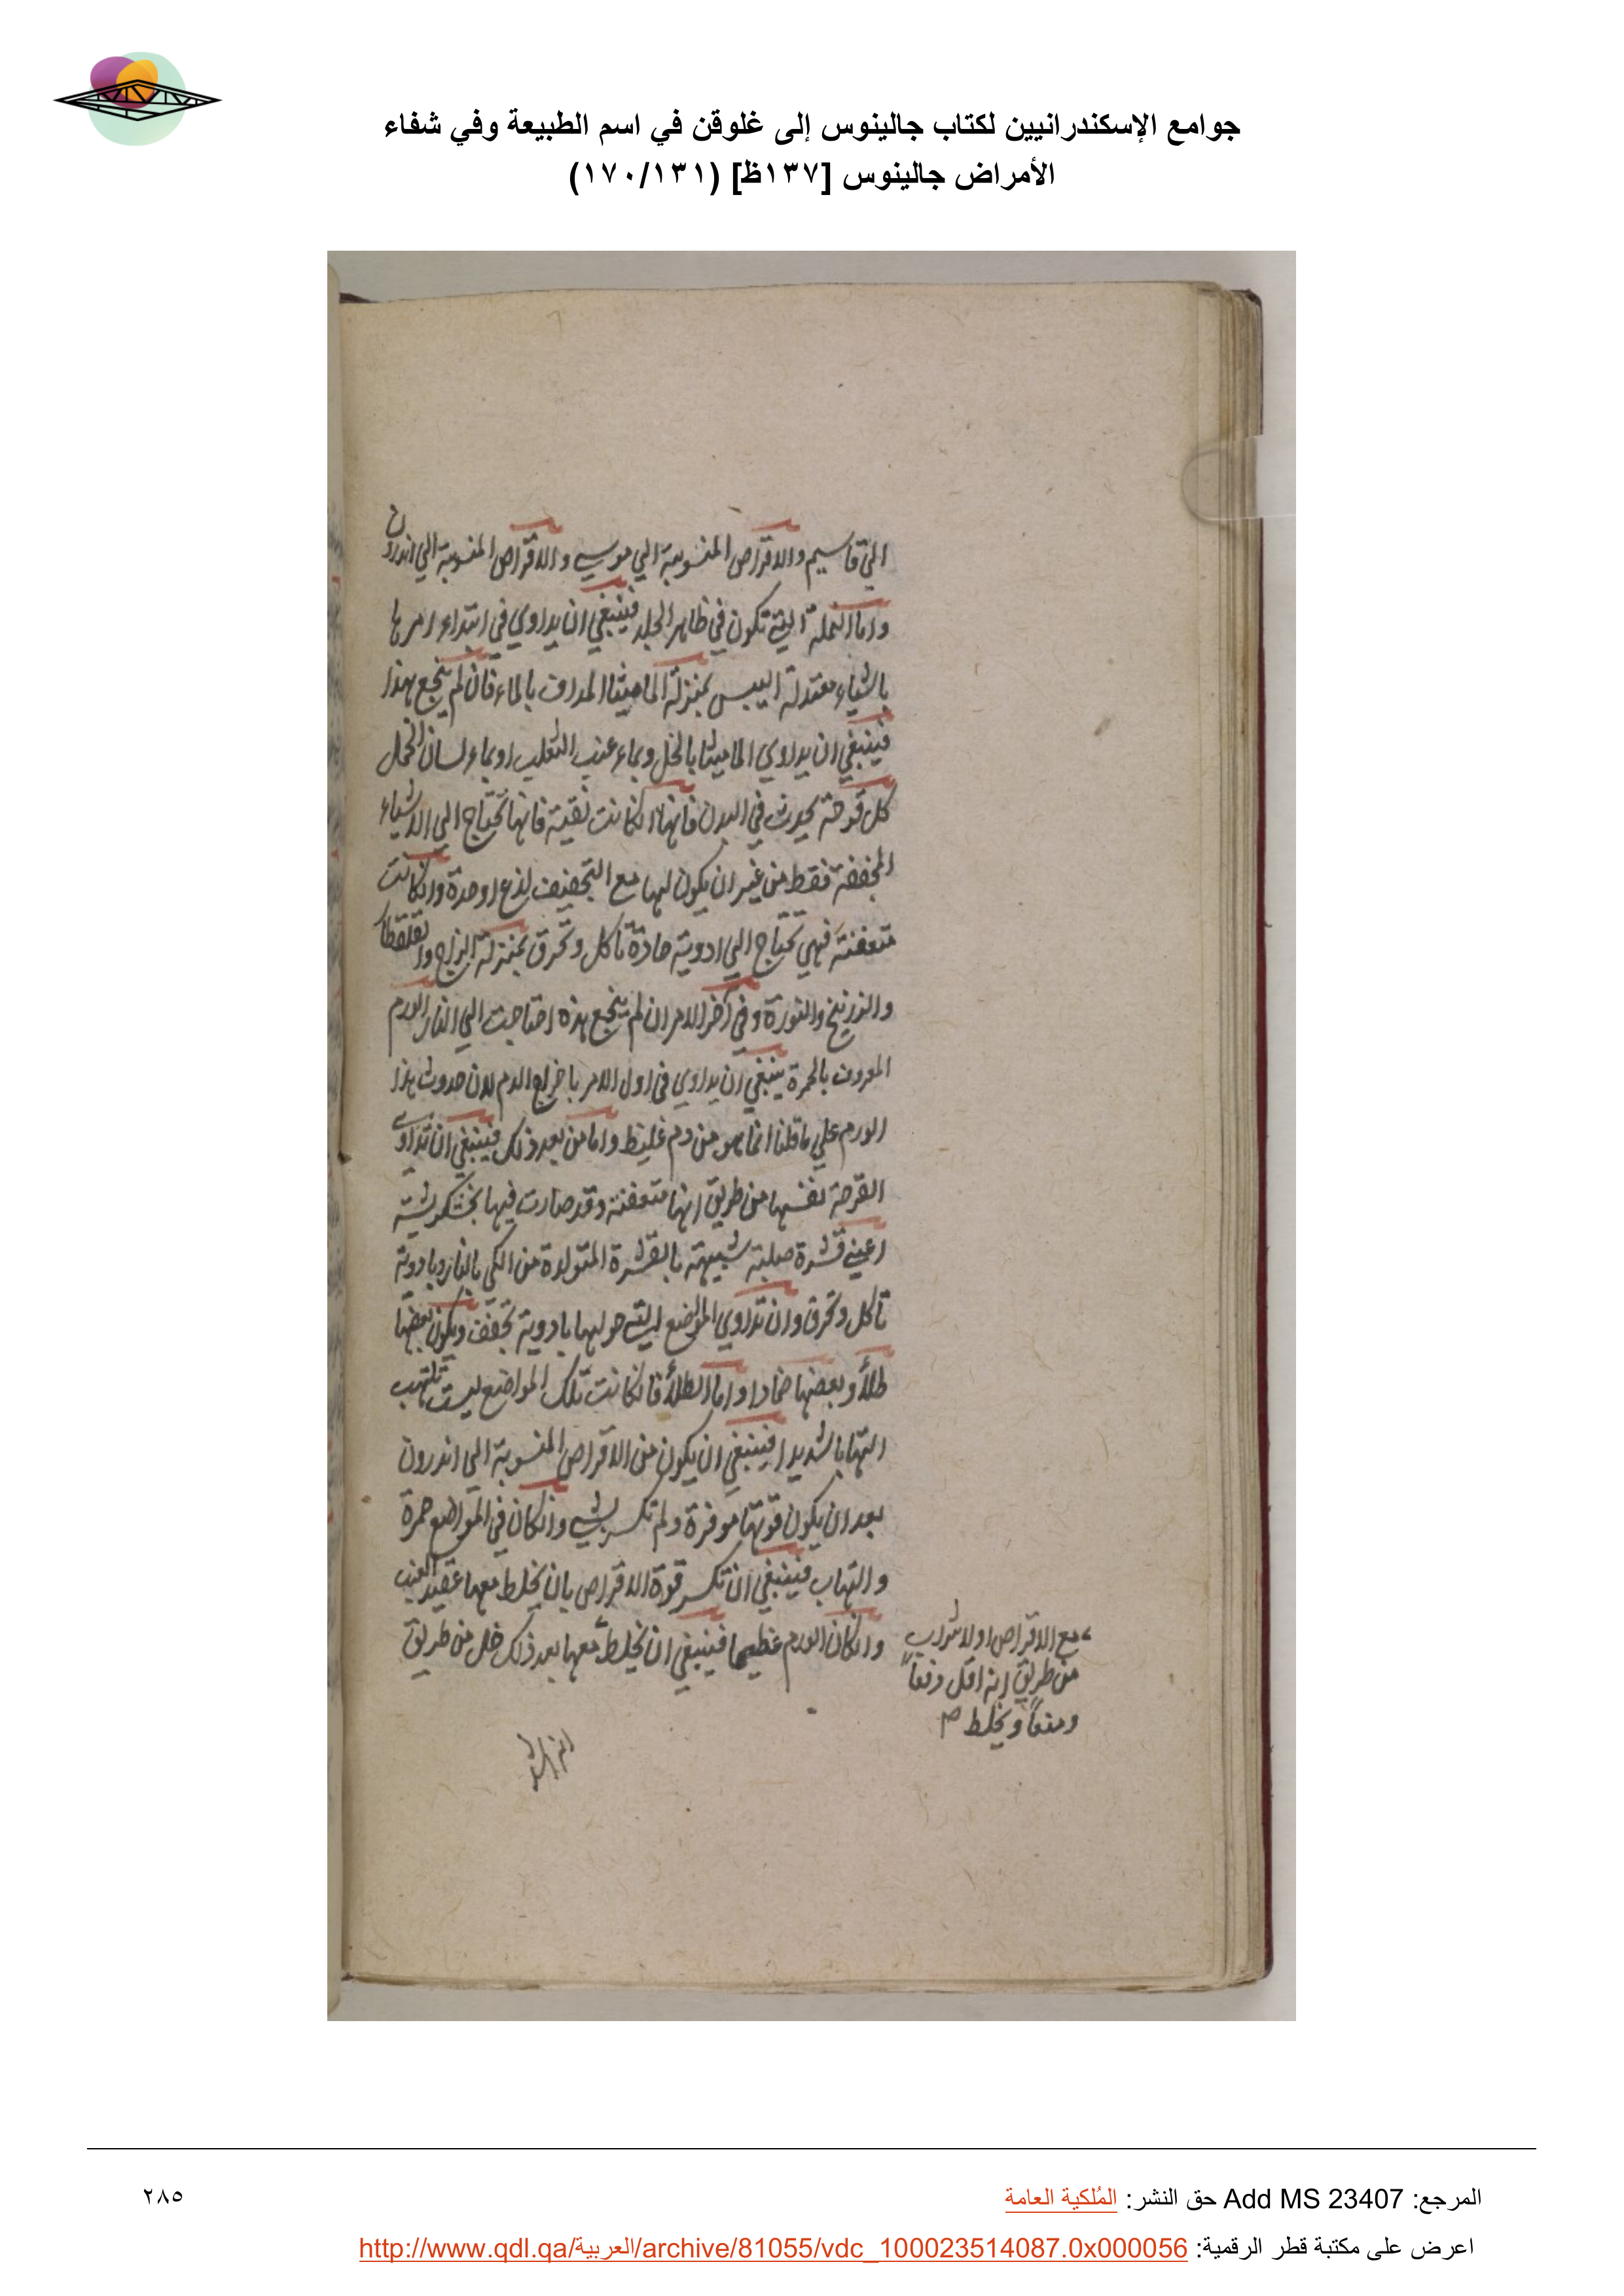 جوامع الإسكندرانيين لكتاب جالينوس إلى غلوقن في اسم الطبيعة وفي شفاء
الأمراض جالينوس [١٣٧ظ] (١٧٠/١٣١)
والاقراص المنسوبة الي موسي والاقراص المنسوبة الي اندرون
واما النملة التي تكون في ظاهر الجلد فينبغي ان يداوي في ابتداء امرها
باشياء معتدلة اليبس بمنزلة الماميثا المداف بالماء فان لم ينجع هذا
فينبغي ان يداوي الماميثا بالخل وبماء عنب الثعلب او بماء لسان الحمل
كل قرحة تحدث في البدن فانها انكانت نقية فانها تحتاج الي الاشياء
المجففة فقط من غير ان يكون لها مع التجفيف لذع او حدة وانكانت
متعفنة فهي تحتاج الي ادوية حادة تاكل وتحرق بمنزلة الزاج والقلقطار
والزرنيخ والنورة وفي آخر الامر ان لم ينجع هذه احتاجت الي النار الورم
المعروف بالحمرة ينبغي ان يداوي في اول الامر باخراج الدم لان حدوث هذا
الورم علي ما قلنا انما هو من دم غليظ واما من بعد ذلك فينبغي ان تداوي
القرحة نفسها من طريق انها متعفنة وقد صارت فيها خشكريشة
اعني قشرة صلبة شبيهة بالقشرة المتولدة من الكي بالنار وبادوية
تاكل وتحرق وان تداوي المواضع التي حولها بادوية تجفف ويكون بعضها
طلاً وبعضها ضمادا واما الطلأ فانكانت تلك المواضع ليست تلتهب
التهابا شديدا فينبغي ان يكون من الاقراص المنسوبة الي اندرون
بعد ان يكون قوتها موفرة ولم تكسر بشي وانكان في المواضع حمرة
والتهاب فينبغي ان تكسر قوة الاقراص بان يخلط معها عقيد العنب
وانكان الورم عظيما فينبغي ان يخلط معها بعد ذلك خل من طريق
مع الاقراص اولا شراب
من طريق انه اقل دفعاً
ومنعاً ويخلط
المرجع: Add MS 23407 حق النشر: المُلكية العامة
٢٨٥
اعرض على مكتبة قطر الرقمية: http://www.qdl.qa/العربية/archive/81055/vdc_100023514087.0x000056